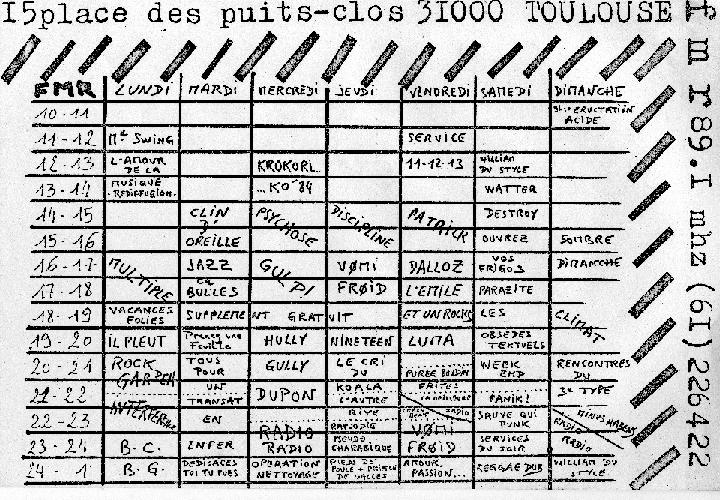 I5place des puits-clos 3I000 TOULOUSE
fmr89.I mhz (6I) 226422
FMR LUNDI MARDI MERCREDI JEUDI VENDREDI SAMEDI DIMANCHE
10-11 ACIDE
11-12 Mr SWING SERVICE
12-13 L'AMOUR DE LA KROKORI... 11-12-13 WILLIAM DU STYLE
13-14 MUSIQUE REDIFFUSION ...KO '84 WATTER
14-15 CLIN D' PSYCHOSE DISCIPLINE PATRICK DESTROY
15-16 OREILLE OUVREZ SOMBRE
16-17 MULTIPLE JAZZ GULPI VØMI DALLOZ VOS FRIGOS DIMANCHE
17-18 EN BULLES FRØID L'EMILE PARAZITE
18-19 VACANCES FOLIES SUPPLEMENT GRATUIT ET UN ROCKS LES CLIMAT
19-20 IL PLEUT Prenez une Feuille HULLY NINETEEN LUNA OBSEDES TEXTUELS
20-21 ROCK GARDEN TOUS POUR GULLY LE CRI DU PUREE WEEK END RENCONTRES DU
21-22 UN TRANSAT DUPON KOALA L'AUTRE FAITES PANIK! 3e TYPE
22-23 EN RADIO RIVE VØMI SAUVE QUI PUNK RADIO
23-24 B.C. ENFER RADIO FRØID SERVICES DU SOIR RADIO
24-1 B.G. DEDISACES TOI TU PUES OPERATION NETTOYAGE AMOUR, PASSION... REGGAE DUB WILLIAM DU STYLE